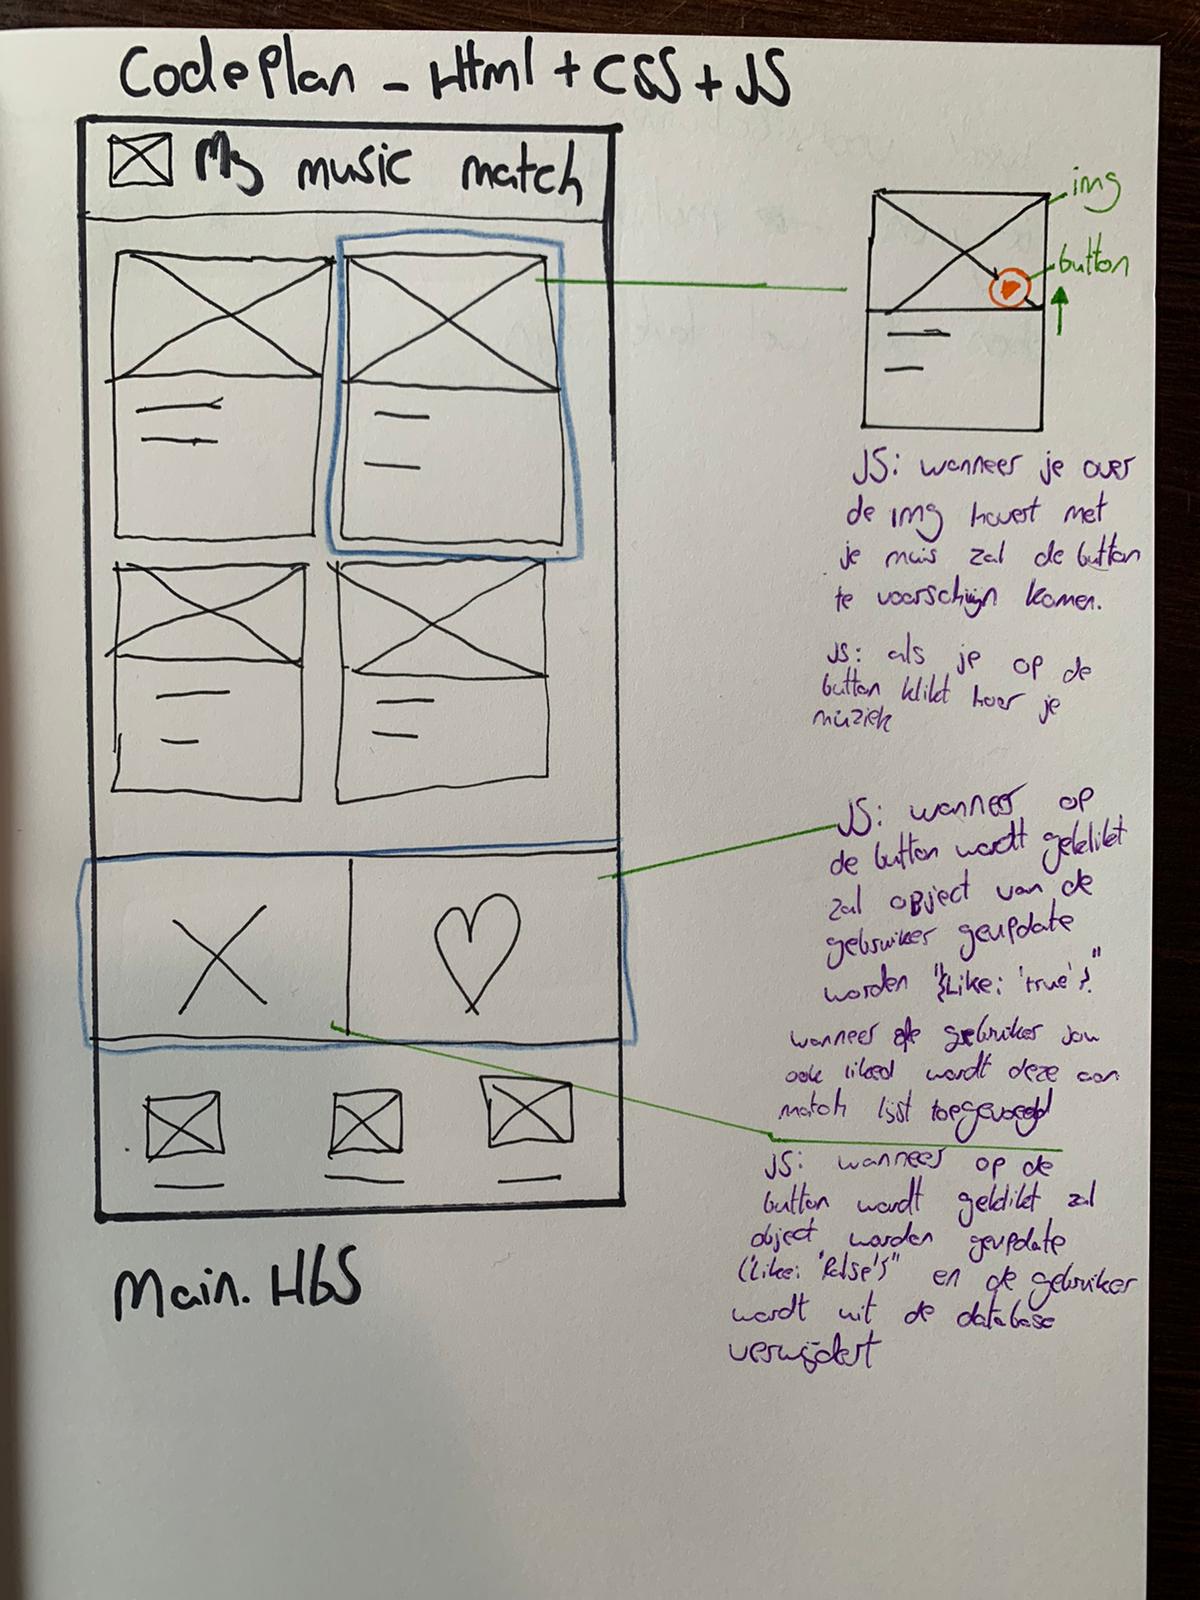 Codeplan - Html + CSS + JS
My music match
img
button
JS: wanneer je over
de img hovert met
je muis zal de button
te voorschijn komen.
JS: als je op de
button klikt hoor je
muziek
JS: wanneer op
de button wordt geklikt
zal object van de
gebruiker geupdate
worden "{Like: 'true'}"
wanneer de gebruiker jou
ook liked wordt deze aan
match lijst toegevoegd
JS: wanneer op de
button wordt geklikt zal
object worden geupdate
(Like: 'false'}" en de gebruiker
wordt uit de database
verwijdert
Main. HBS